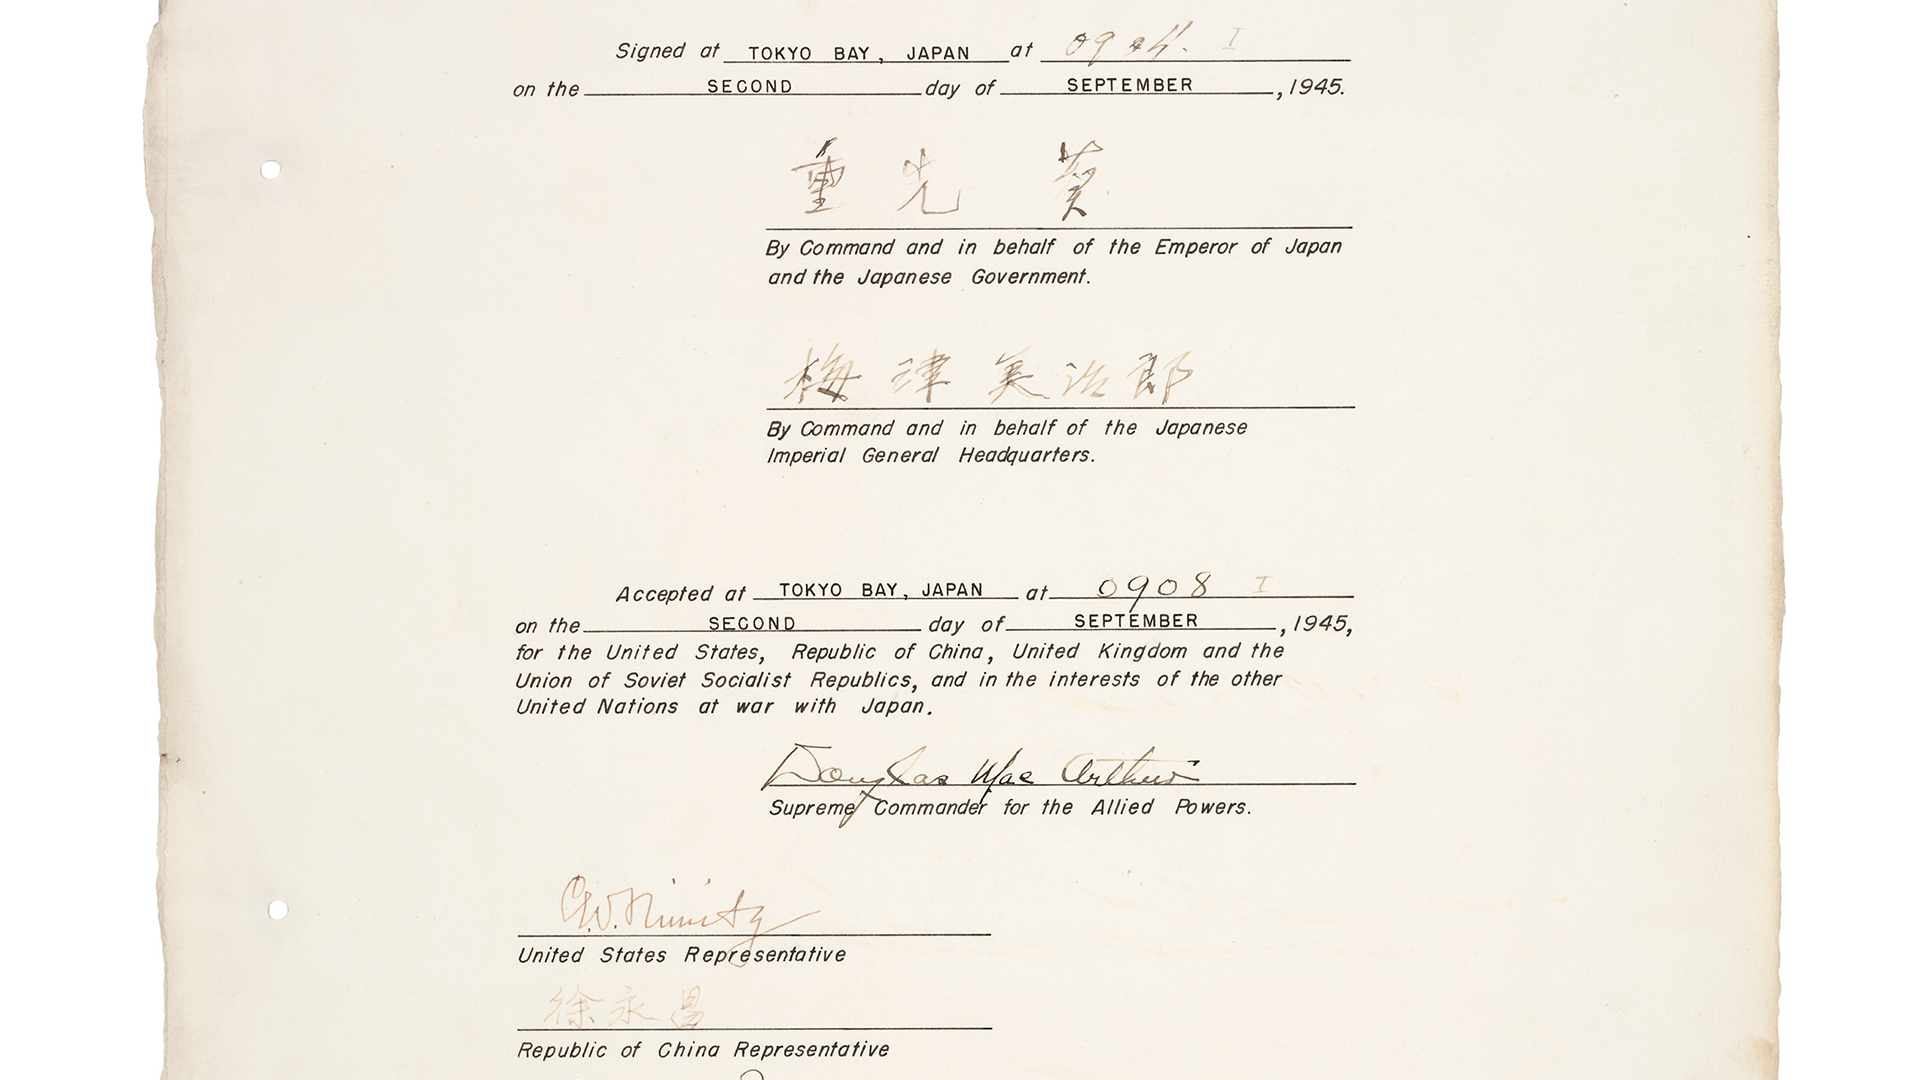 Signed at TOKYO BAY, JAPAN at 0904 I
on the SECOND day of SEPTEMBER, 1945.
重光 葵
By Command and in behalf of the Emperor of Japan
and the Japanese Government.
梅津美治郎
By Command and in behalf of the Japanese
Imperial General Headquarters.
Accepted at TOKYO BAY, JAPAN at 0908 I
on the SECOND day of SEPTEMBER, 1945,
for the United States, Republic of China, United Kingdom and the
Union of Soviet Socialist Republics, and in the interests of the other
United Nations at war with Japan.
Douglas MacArthur
Supreme Commander for the Allied Powers.
C.W. Nimitz
United States Representative
徐永昌
Republic of China Representative